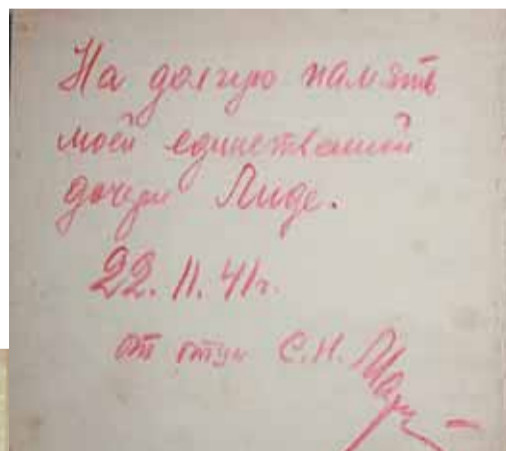 На долгую память
моей единственной
дочери Лиде.
22. 11. 41г.
от отца С.Н.